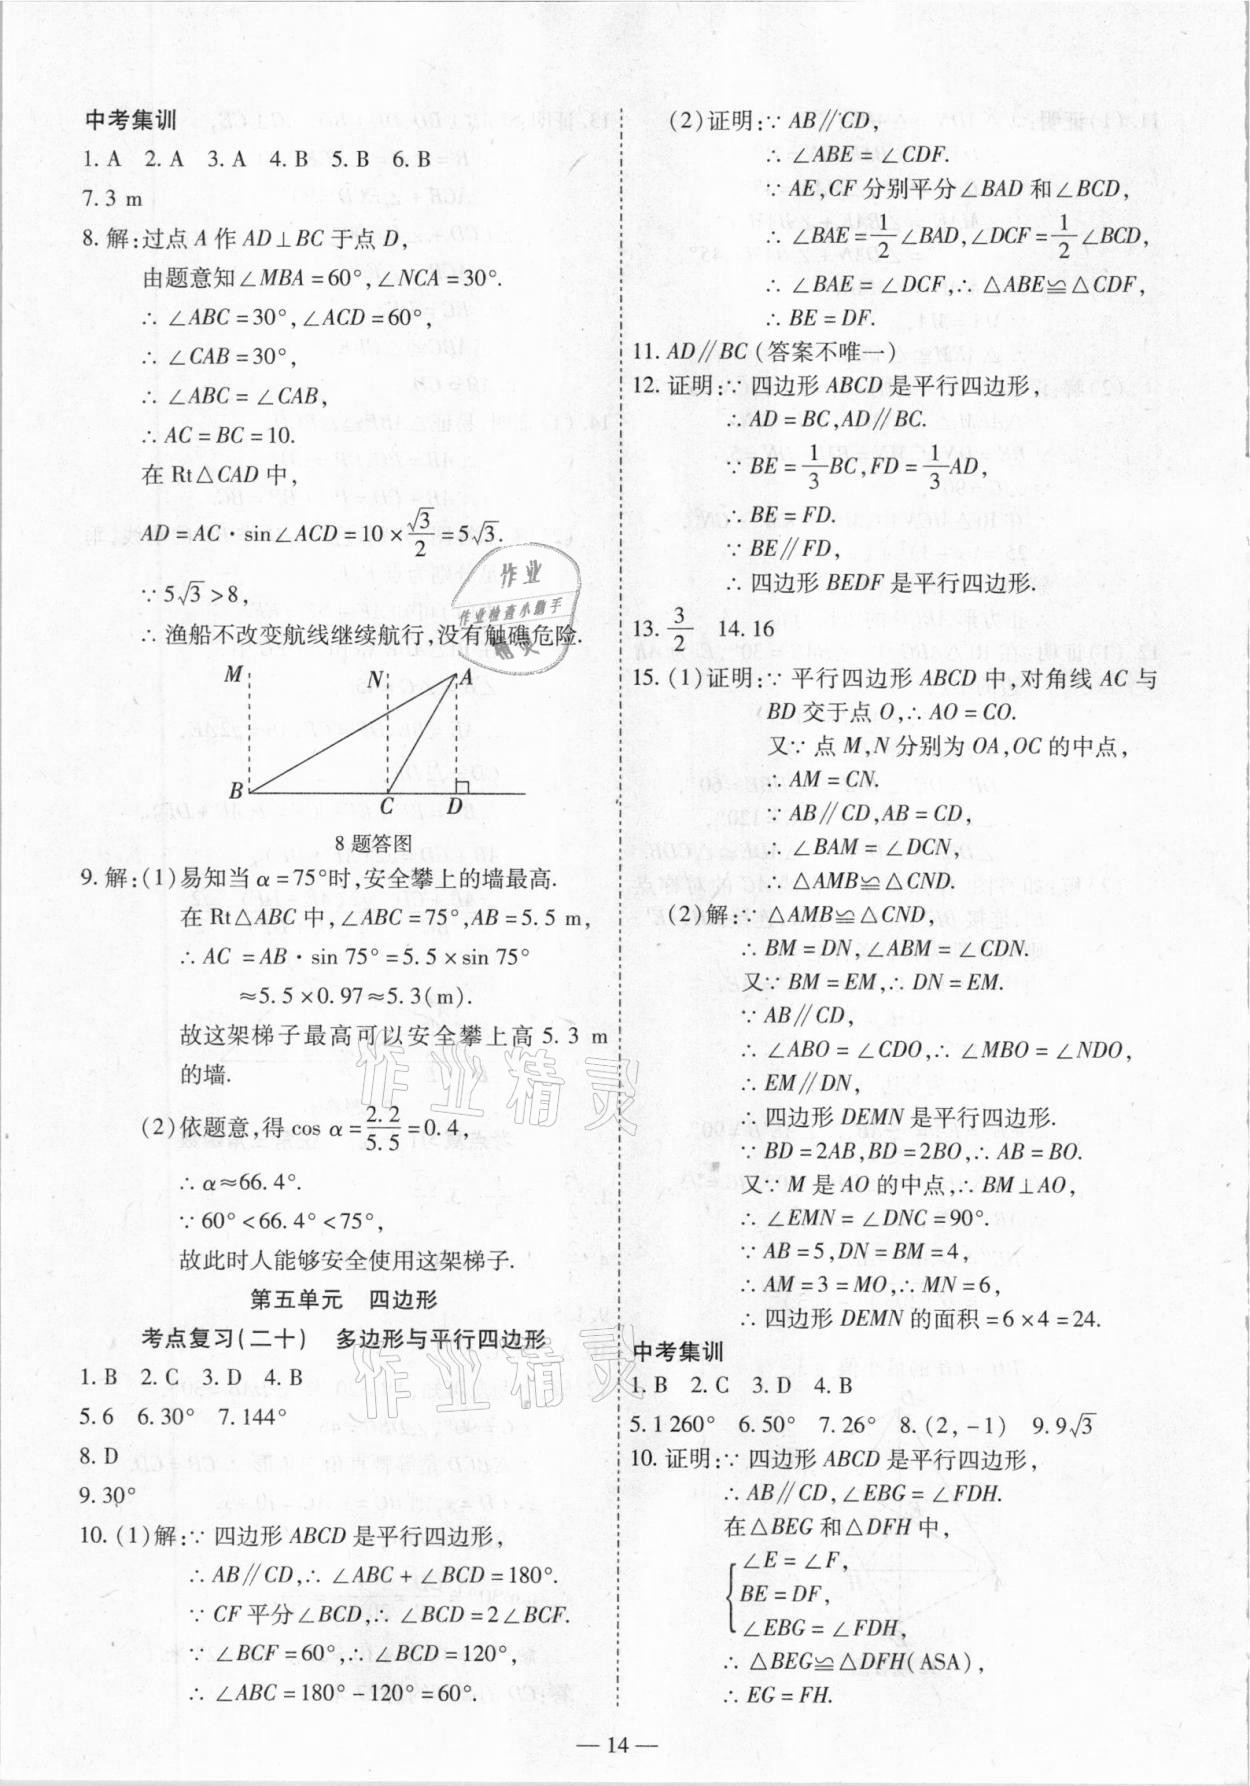 中考集训
1. A 2. A 3. A 4. B 5. B 6. B
7. 3 m
8. 解:过点 A 作 AD⊥BC 于点 D,
由题意知∠MBA=60°,∠NCA=30°.
∴ ∠ABC=30°,∠ACD=60°,
∴ ∠CAB=30°,
∴ ∠ABC=∠CAB,
∴ AC=BC=10.
在 Rt△CAD 中,
AD=AC·sin∠ACD=10×√3/2=5√3.
∵5√3>8,
∴ 渔船不改变航线继续航行,没有触礁危险.
M N A
B C D
8 题答图
9. 解:(1)易知当 α=75°时,安全攀上的墙最高.
在 Rt△ABC 中,∠ABC=75°,AB=5.5 m,
∴ AC =AB·sin 75°=5.5×sin 75°
≈5.5×0.97≈5.3(m).
故这架梯子最高可以安全攀上高 5.3 m
的墙.
(2)依题意,得 cos α=2.2/5.5=0.4,
∴ α≈66.4°.
∵60°<66.4°<75°,
故此时人能够安全使用这架梯子.
第五单元 四边形
考点复习(二十) 多边形与平行四边形
1. B 2. C 3. D 4. B
5. 6 6. 30° 7. 144°
8. D
9. 30°
10. (1)解:∵ 四边形 ABCD 是平行四边形,
∴ AB∥CD,∴ ∠ABC+∠BCD=180°.
∵ CF 平分∠BCD,∴ ∠BCD=2∠BCF.
∵ ∠BCF=60°,∴ ∠BCD=120°,
∴ ∠ABC=180°-120°=60°.
(2)证明:∵ AB∥CD,
∴ ∠ABE=∠CDF.
∵ AE,CF 分别平分∠BAD 和∠BCD,
∴ ∠BAE=1/2∠BAD,∠DCF=1/2∠BCD,
∴ ∠BAE=∠DCF,∴ △ABE≌△CDF,
∴ BE=DF.
11. AD∥BC(答案不唯一)
12. 证明:∵ 四边形 ABCD 是平行四边形,
∴AD=BC,AD∥BC.
∵ BE=1/3BC,FD=1/3AD,
∴ BE=FD.
∵ BE∥FD,
∴ 四边形 BEDF 是平行四边形.
13. 3/2 14. 16
15. (1)证明:∵ 平行四边形 ABCD 中,对角线 AC 与
BD 交于点 O,∴ AO=CO.
又∵ 点 M,N 分别为 OA,OC 的中点,
∴ AM=CN.
∵ AB∥CD,AB=CD,
∴ ∠BAM=∠DCN,
∴ △AMB≌△CND.
(2)解:∵ △AMB≌△CND,
∴ BM=DN,∠ABM=∠CDN.
又∵ BM=EM,∴ DN=EM.
∵ AB∥CD,
∴ ∠ABO=∠CDO,∴ ∠MBO=∠NDO,
∴ EM∥DN,
∴ 四边形 DEMN 是平行四边形.
∵ BD=2AB,BD=2BO,∴ AB=BO.
又∵ M 是 AO 的中点,∴ BM⊥AO,
∴ ∠EMN=∠DNC=90°.
∵ AB=5,DN=BM=4,
∴ AM=3=MO,∴ MN=6,
∴ 四边形 DEMN 的面积=6×4=24.
中考集训
1. B 2. C 3. D 4. B
5. 1 260° 6. 50° 7. 26° 8. (2,-1) 9. 9√3
10. 证明:∵ 四边形 ABCD 是平行四边形,
∴ AB∥CD,∠EBG=∠FDH.
在△BEG 和△DFH 中,
∠E=∠F,
BE=DF,
∠EBG=∠FDH,
∴ △BEG≌△DFH(ASA),
∴ EG=FH.
— 14 —
作业
作业检查小助手
精灵
作业精灵
作业精灵